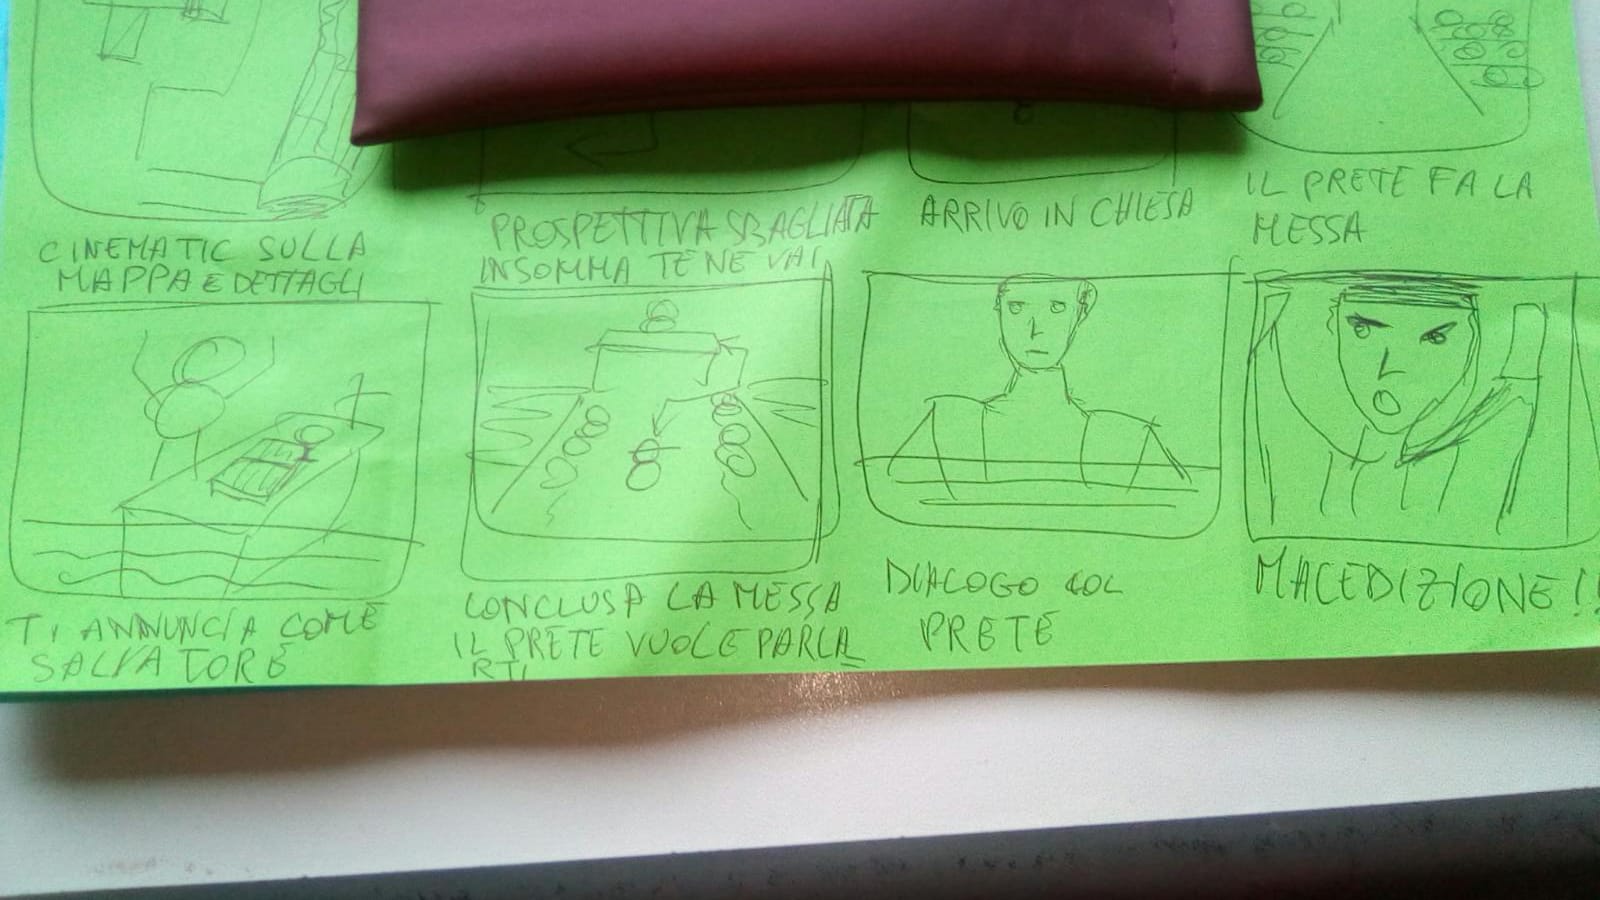 CINEMATIC SULLA
MAPPA E DETTAGLI
PROSPETTIVA SBAGLIATA
INSOMMA TE NE VAI
ARRIVO IN CHIESA
IL PRETE FA LA
MESSA
TI ANNUNCIA COME
SALVATORE
CONCLUSA LA MESSA
IL PRETE VUOLE PARLA_
RTI
DIALOGO COL
PRETE
MALEDIZIONE!!